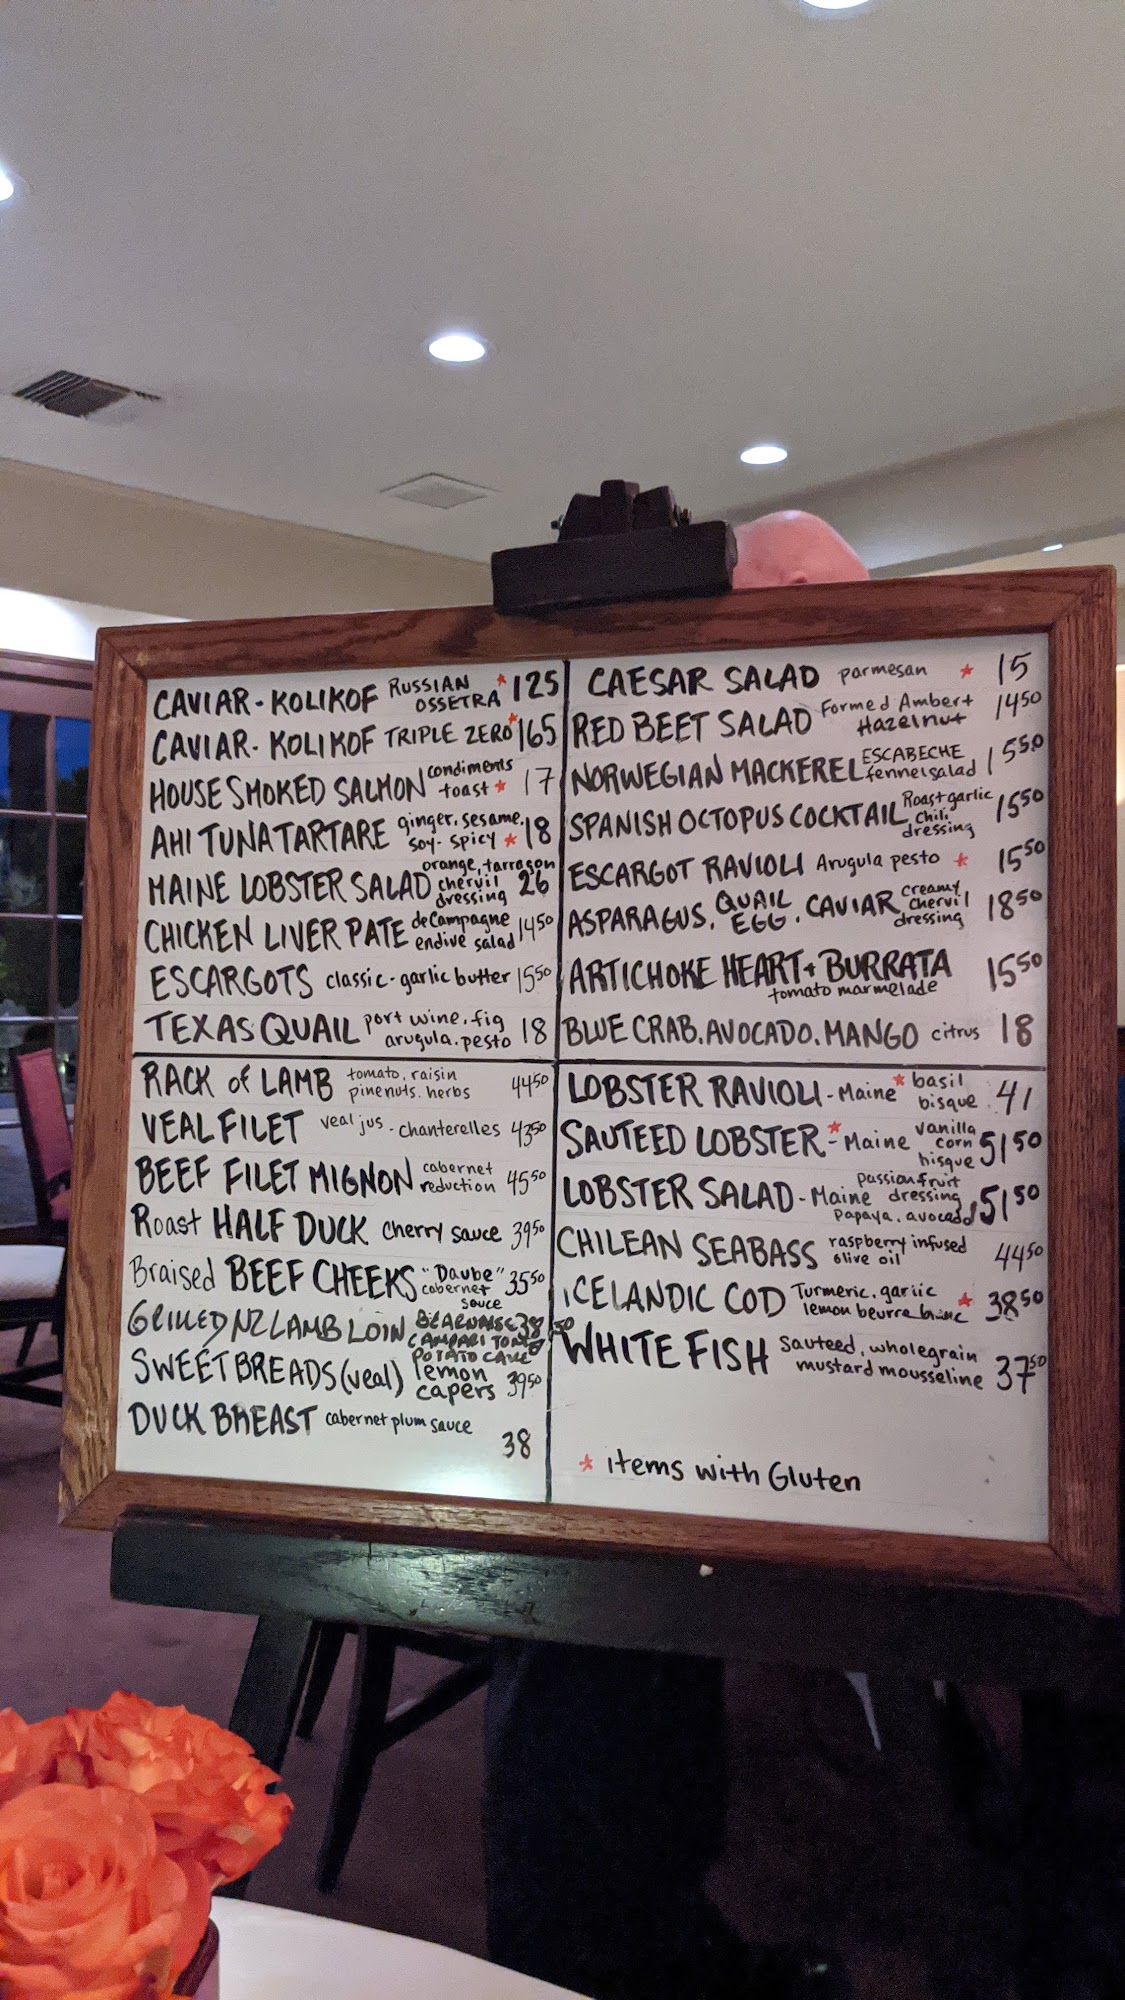 CAVIAR-KOLIKOF RUSSIAN OSSETRA * 125
CAVIAR-KOLIKOF TRIPLE ZERO * 165
HOUSE SMOKED SALMON condiments toast * 17
AHI TUNA TARTARE ginger, sesame, soy-spicy * 18
MAINE LOBSTER SALAD orange, tarragon chervil dressing 26
CHICKEN LIVER PATE de Campagne endive salad 14 50
ESCARGOTS classic-garlic butter 15 50
TEXAS QUAIL port wine, fig arugula, pesto 18
CAESAR SALAD parmesan * 15
RED BEET SALAD Formed Ambert Hazelnut 14 50
NORWEGIAN MACKEREL ESCABECHE fennel salad 15 50
SPANISH OCTOPUS COCKTAIL Roast garlic chili dressing 15 50
ESCARGOT RAVIOLI Arugula pesto * 15 50
ASPARAGUS. QUAIL EGG. CAVIAR creamy chervil dressing 18 50
ARTICHOKE HEART + BURRATA tomato marmelade 15 50
BLUE CRAB. AVOCADO. MANGO citrus 18
RACK of LAMB tomato, raisin pinenuts. herbs 44 50
VEAL FILET veal jus - chanterelles 43 50
BEEF FILET MIGNON cabernet reduction 45 50
Roast HALF DUCK Cherry sauce 39 50
Braised BEEF CHEEKS "Daube" cabernet sauce 35 50
GRILLED NZ LAMB LOIN BEARNAISE CAMPARI POTATO CAKE 38 50
SWEETBREADS (veal) lemon capers 39 50
DUCK BREAST cabernet plum sauce 38
LOBSTER RAVIOLI - Maine * basil bisque 41
SAUTEED LOBSTER - * Maine vanilla corn bisque 51 50
LOBSTER SALAD - Maine passionfruit dressing papaya. avocado 51 50
CHILEAN SEABASS raspberry infused olive oil 44 50
ICELANDIC COD Turmeric, garlic lemon beurre blanc * 38 50
WHITE FISH Sauteed, wholegrain mustard mousseline 37 50
* items with Gluten